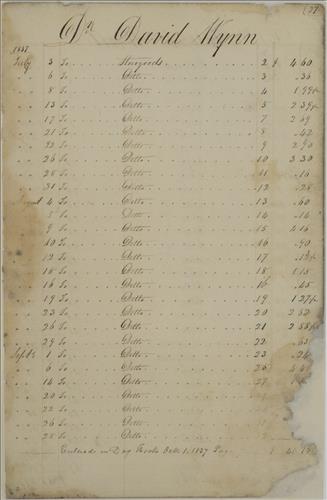 (27
Dr David Wynn
1837
July 3 To Sungoods 2 $ 4 60
" 6 To Ditto 3 .36
" 8 To Ditto 4 1 99
" 13 To Ditto 5 2 39
" 17 To Ditto 7 2 69
" 21 To Ditto 8 .42
" 22 To Ditto 9 2 90
" 26 To Ditto 10 3 30
" 28 To Ditto 11 .16
" 31 To Ditto 12 .28
August 4 To Ditto 13 .60
" 5 To Ditto 14 .16
" 9 To Ditto 15 4 16
" 10 To Ditto 16 .90
" 12 To Ditto 17
" 15 To Ditto 18 1 15
" 16 To Ditto .45
" 19 To Ditto 19 1 27
" 23 To Ditto 20 2 52
" 26 To Ditto 21 2 55
" 29 To Ditto 22
Sept 1 To Ditto 23
" 6 To Ditto 25
" 14 To Ditto 27
" 20 To Ditto
" 22 To Ditto
" 26 To Ditto
" 28 To Ditto
Entered in Day Book Oct 1, 1837 Page